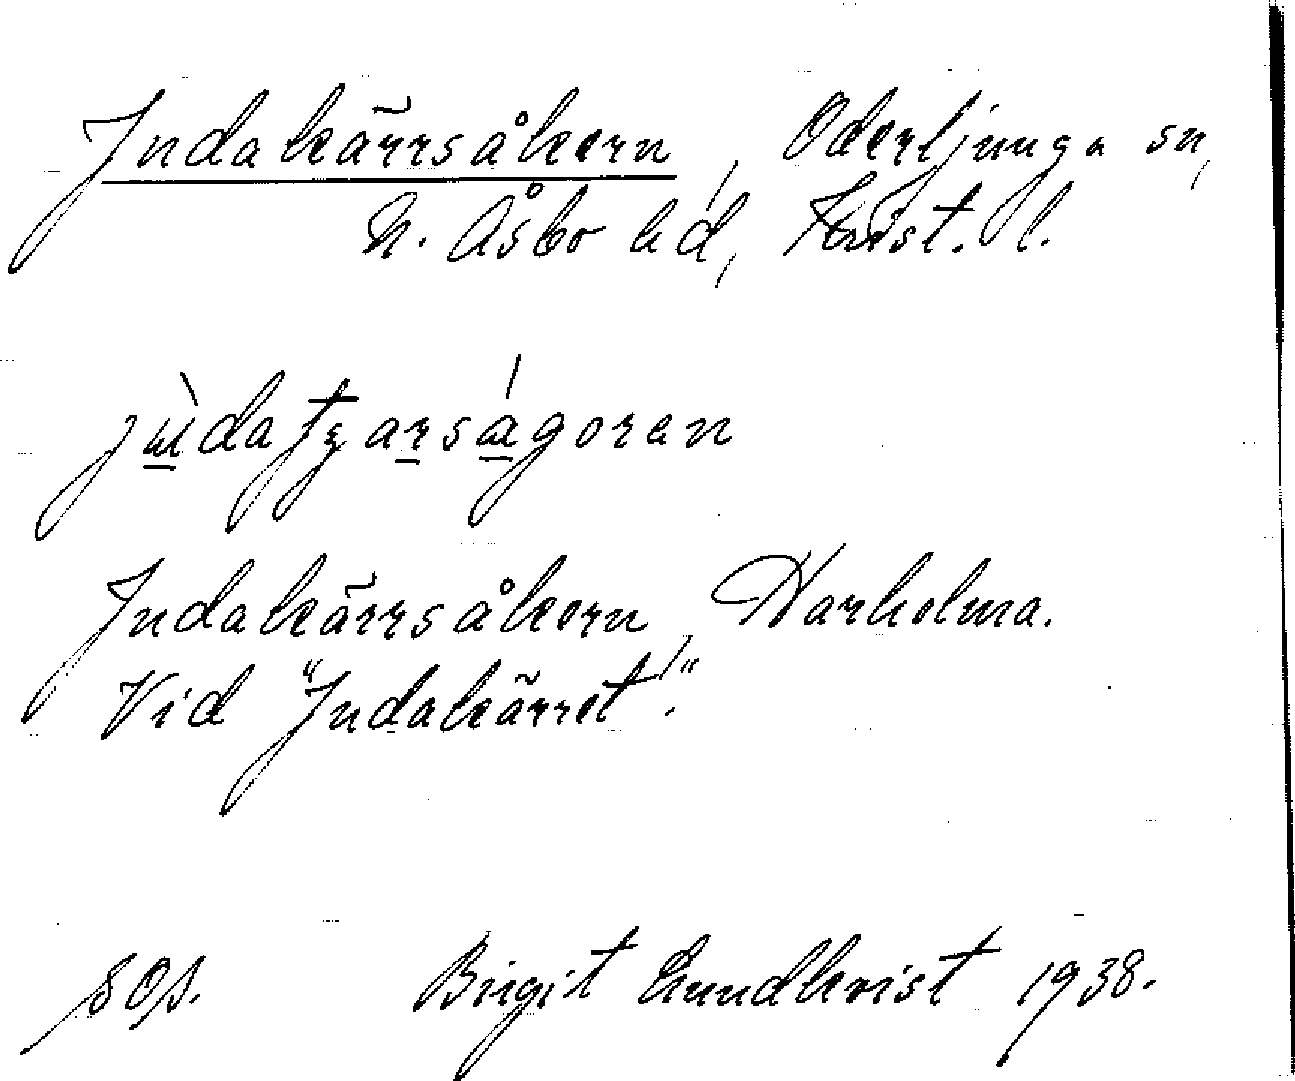 Judakärrsåkern, Oderljunga sn,
N. Åsbo hd, Krist. l.
Judakärrsåkern, Harholma.
Vid "Judakärret".
Birgit Lundkvist 1938.